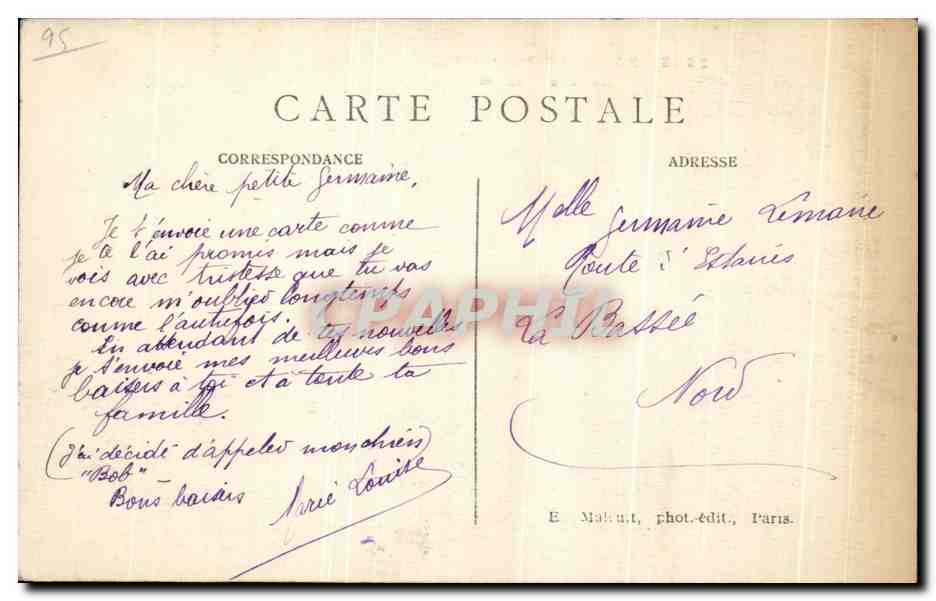 95
CARTE POSTALE
CORRESPONDANCE
Ma chère petite Germaine,
Je t'envoie une carte comme
je te l'ai promis mais je
vois avec tristesse que tu vas
encore m'oublier longtemps
comme l'autrefois.
En attendant de tes nouvelles
je t'envoie mes meilleurs bons
baisers à toi et à toute ta
famille.
(J'ai décidé d'appeler mon chien)
"Bob"
Bons baisers
Marie Louise
ADRESSE
Melle Germaine Lemaire
Route d'Estaires
La Bassée
Nord
E. Malcuit, phot.-édit., Paris.
CPAPHIL